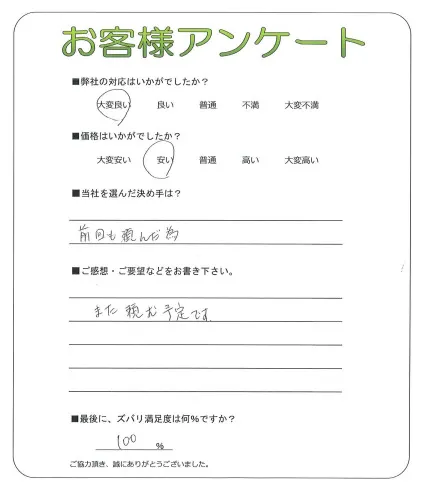 お客様アンケート
■弊社の対応はいかがでしたか?
大変良い 良い 普通 不満 大変不満
■価格はいかがでしたか?
大変安い 安い 普通 高い 大変高い
■当社を選んだ決め手は?
前回も頼んだ為
■ご感想・ご要望などをお書き下さい。
また頼む予定です
■最後に、ズバリ満足度は何%ですか?
100 %
ご協力頂き、誠にありがとうございました。